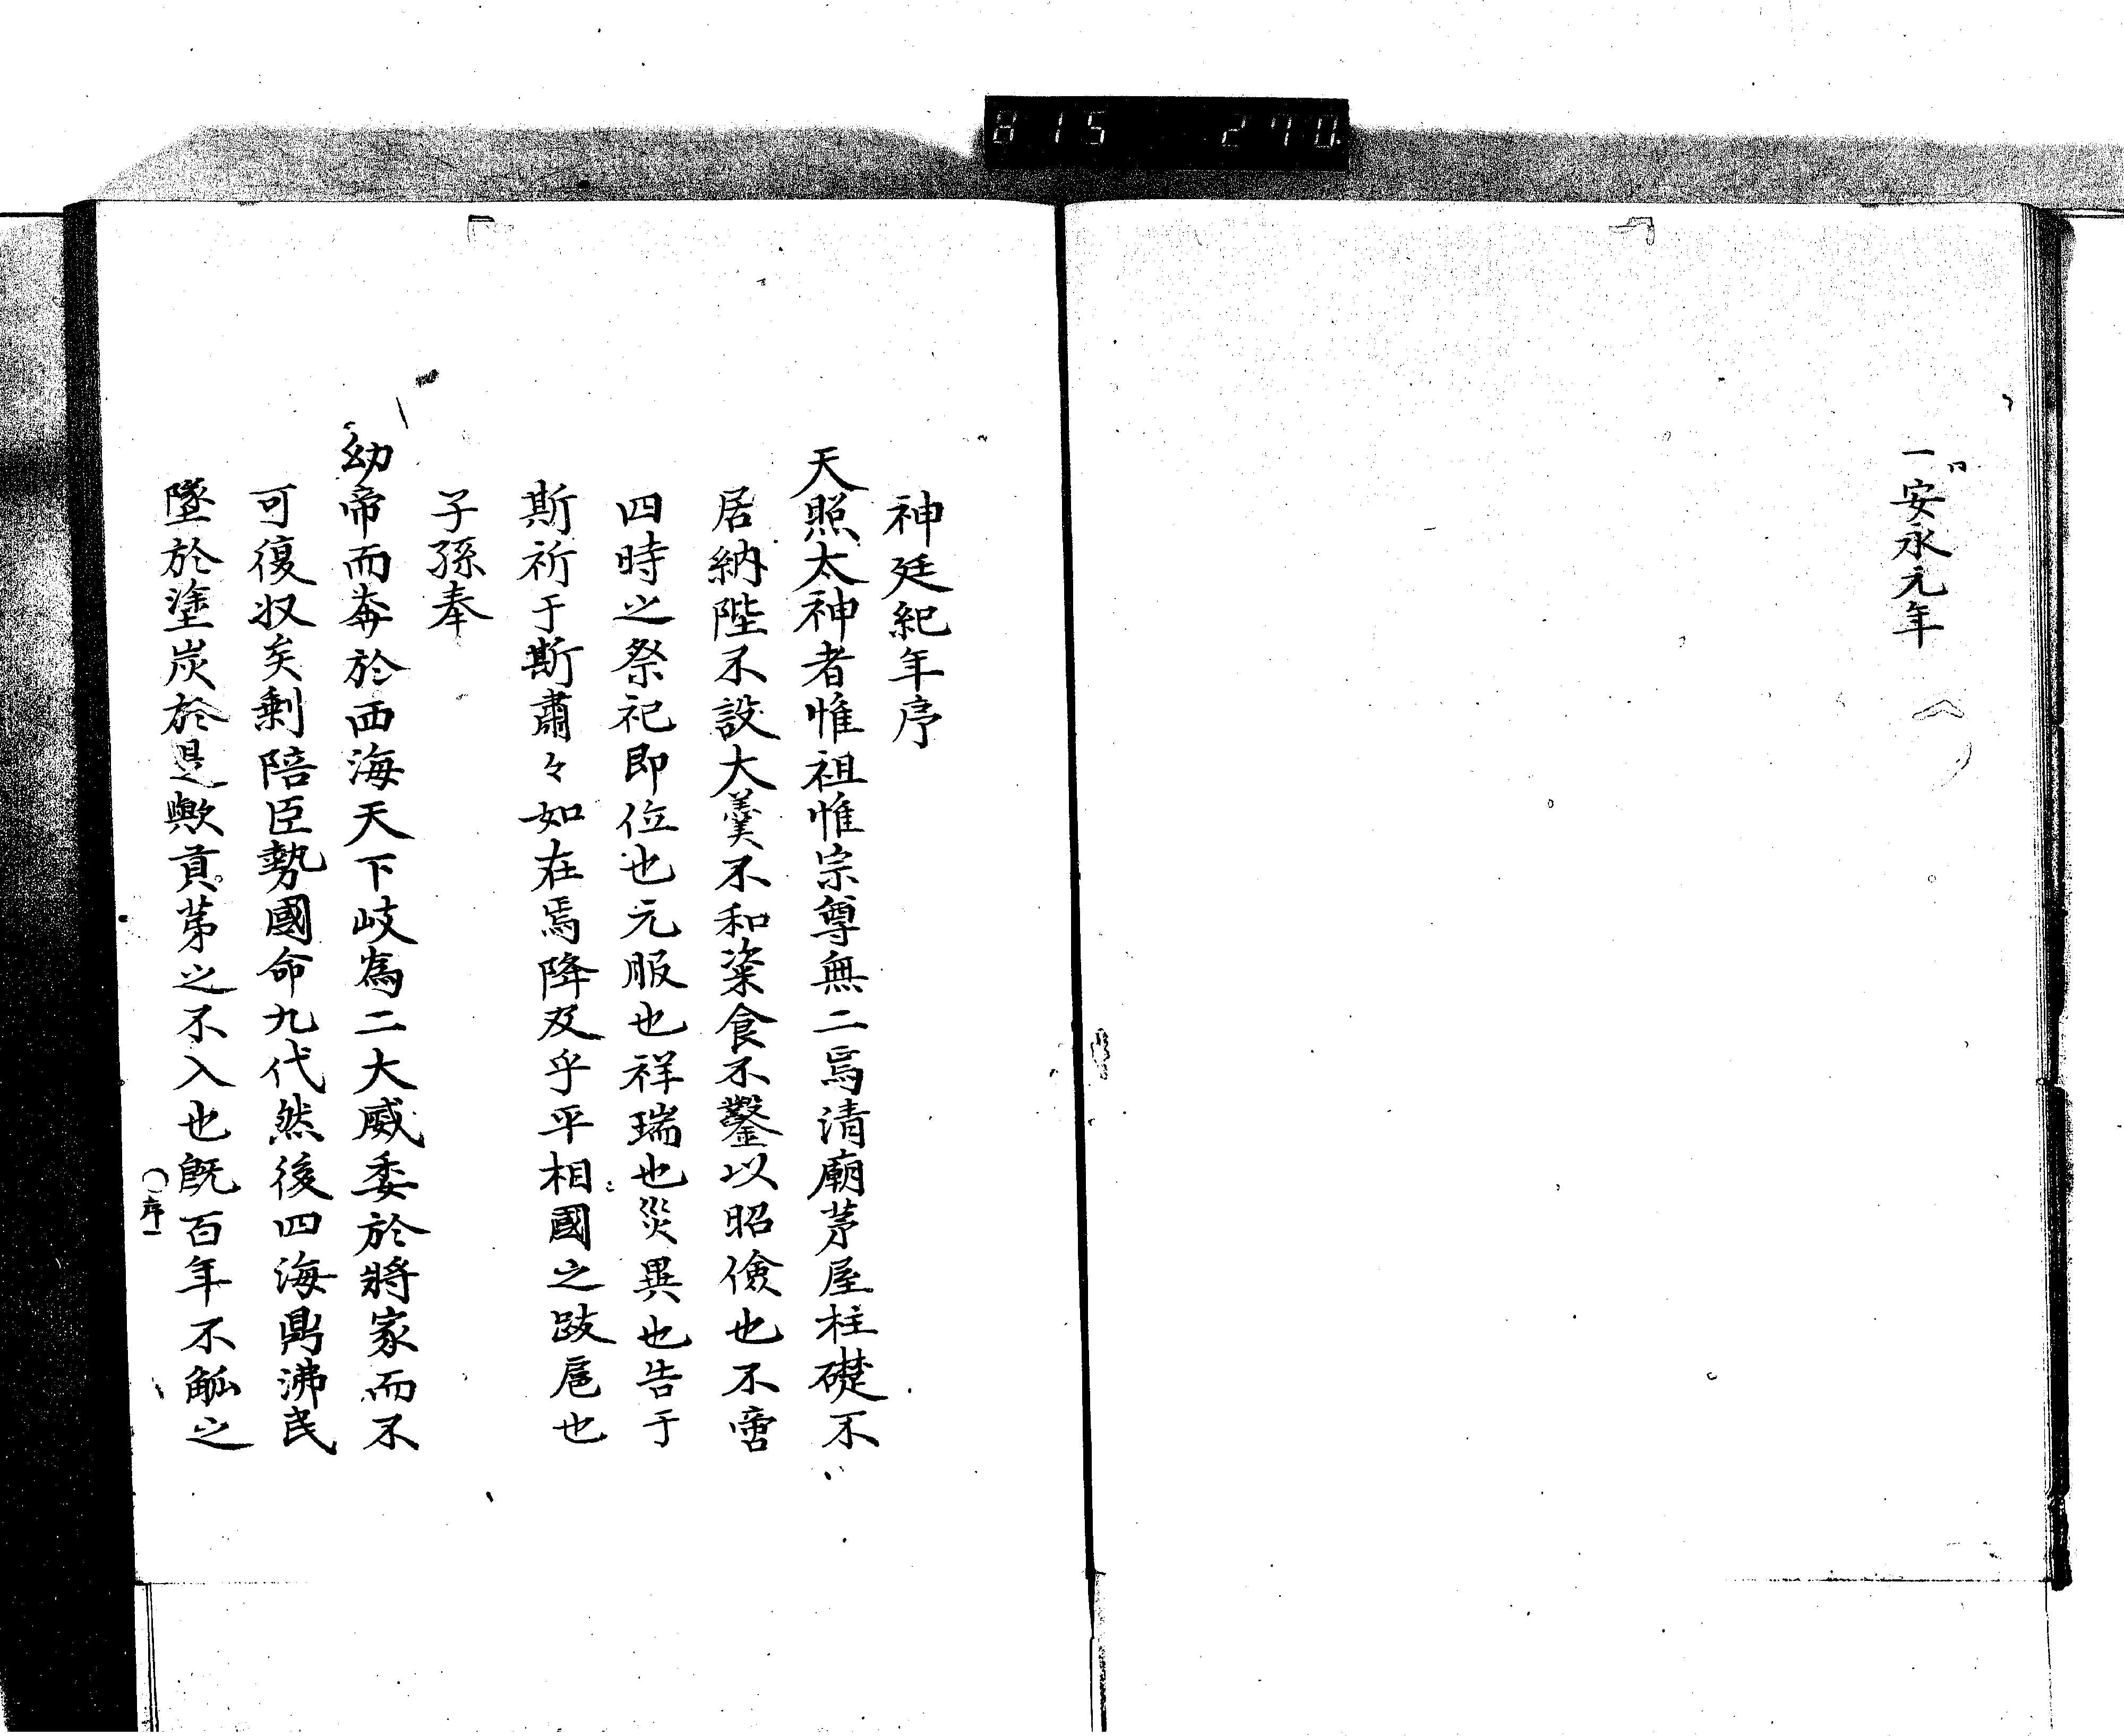 815 270.
一安永元年
神廷紀年序
天照太神者惟祖惟宗尊無二焉清廟茅屋柱礎不
居納陛不設大羹不和粢食不鑿以昭儉也不啻
四時之祭祀即位也元服也祥瑞也災異也告于
斯祈于斯肅々如在焉降及乎平相國之跋扈也
子孫奉
幼帝而崩於西海天下岐為二大威委於將家而不
可復収矣剰陪臣勢國命九代然後四海鼎沸民
墜於塗炭於是歟貢茅之不入也既百年不觚之
○序一